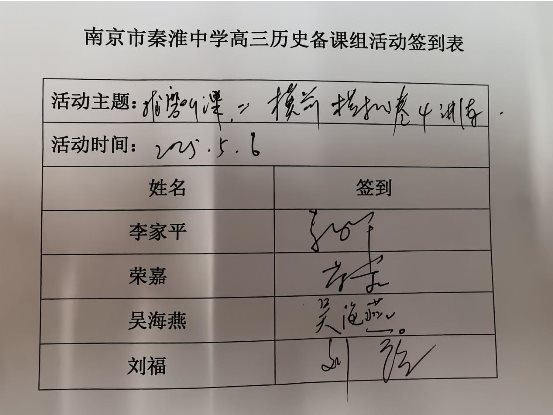 南京市秦淮中学高三历史备课组活动签到表
活动主题: 课, 二模前模拟卷 讲
活动时间: 2025.5.6
姓名 签到
李家平
荣嘉 荣嘉
吴海燕 吴海燕
刘福 刘福